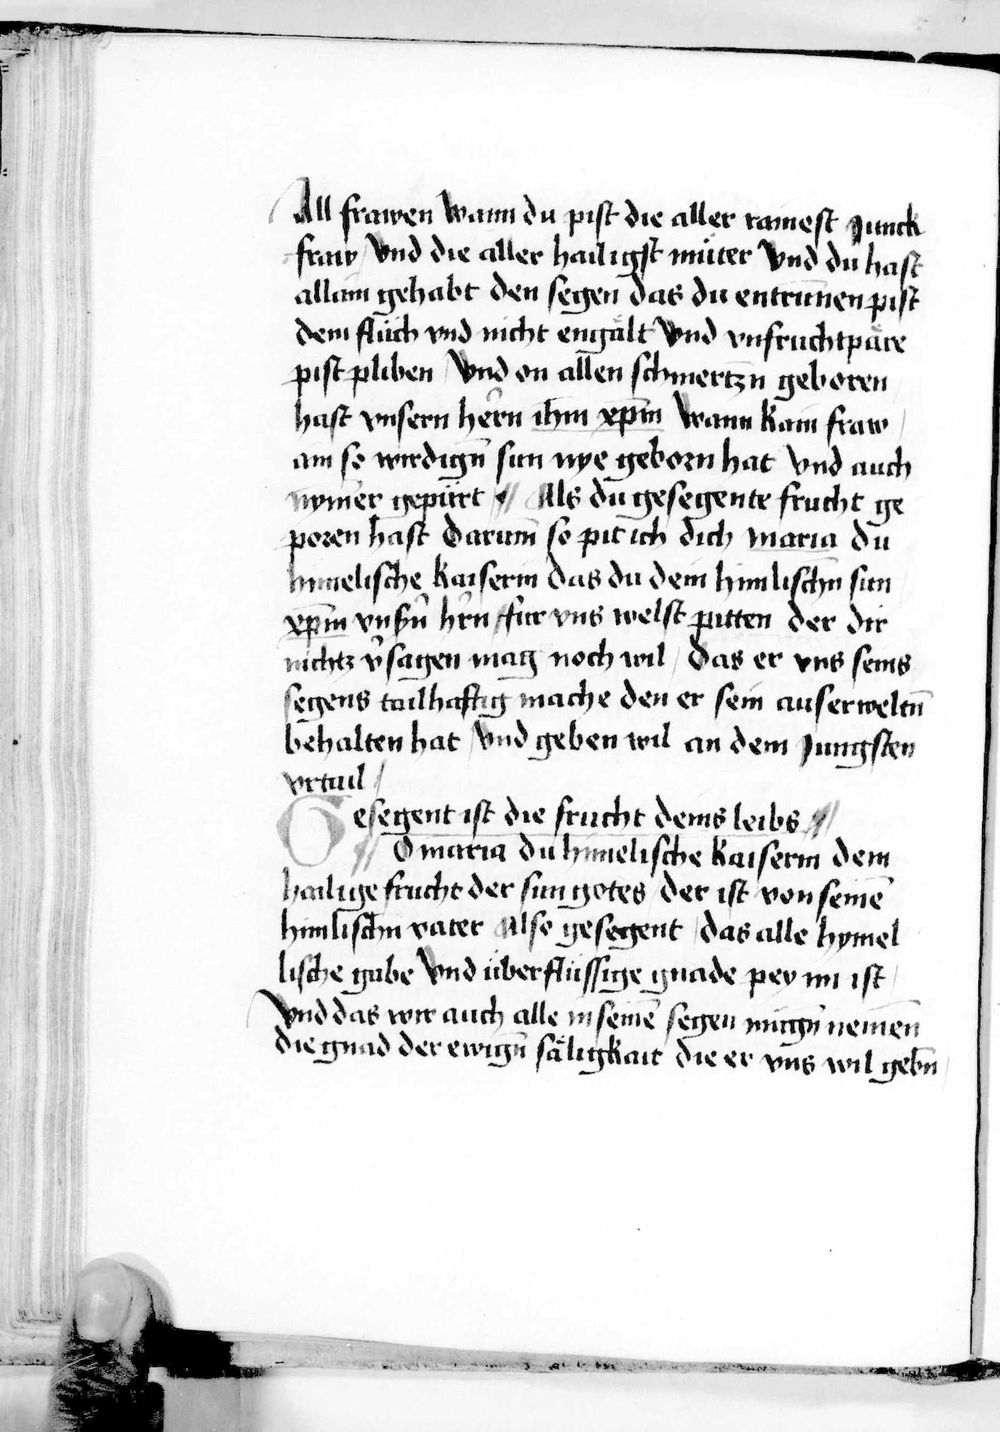 All frawen wann du pist die aller rainest Junck
fraw / vnd die aller hailigst müter vnd du hast
allain gehabt den segen das du entrunnen pist
dem flüch vnd nicht engält vnd vnfruchtpäre
pist pliben / vnd on allen schmertzn geboren
hast vnsern hern̄ ih̄m xp̄m wann kain fraw /
ain so wirdign̄ sun nye geborn hat vnd auch
nym̄er gepürt // Als du gesegente frucht ge
poren hast Darum̄ so pit ich dich maria du
himelische kaiserin das du dein himlischn̄ sun
xp̄m vnsn̄ hrn̄ für vns welst pitten der dir
nichtz v̄sagen mag noch wil / das er vns seins
segens tailhaftig mache den er sein auserweltn̄
behalten hat / vnd geben wil an dem Jungsten
vrtail /
Gesegent ist die frucht deins leibs //
// O maria du himelische kaiserin dein
hailige frucht der sun gotes / der ist von seinē
himlischn̄ vater Also gesegent / das alle hymel
lische gabe vnd überflüssige gnade pey im ist /
vnd das wir auch alle in seinē segen mügn̄ nemen̄
die gnad der ewign̄ säligkait die er vns wil gebn̄ /